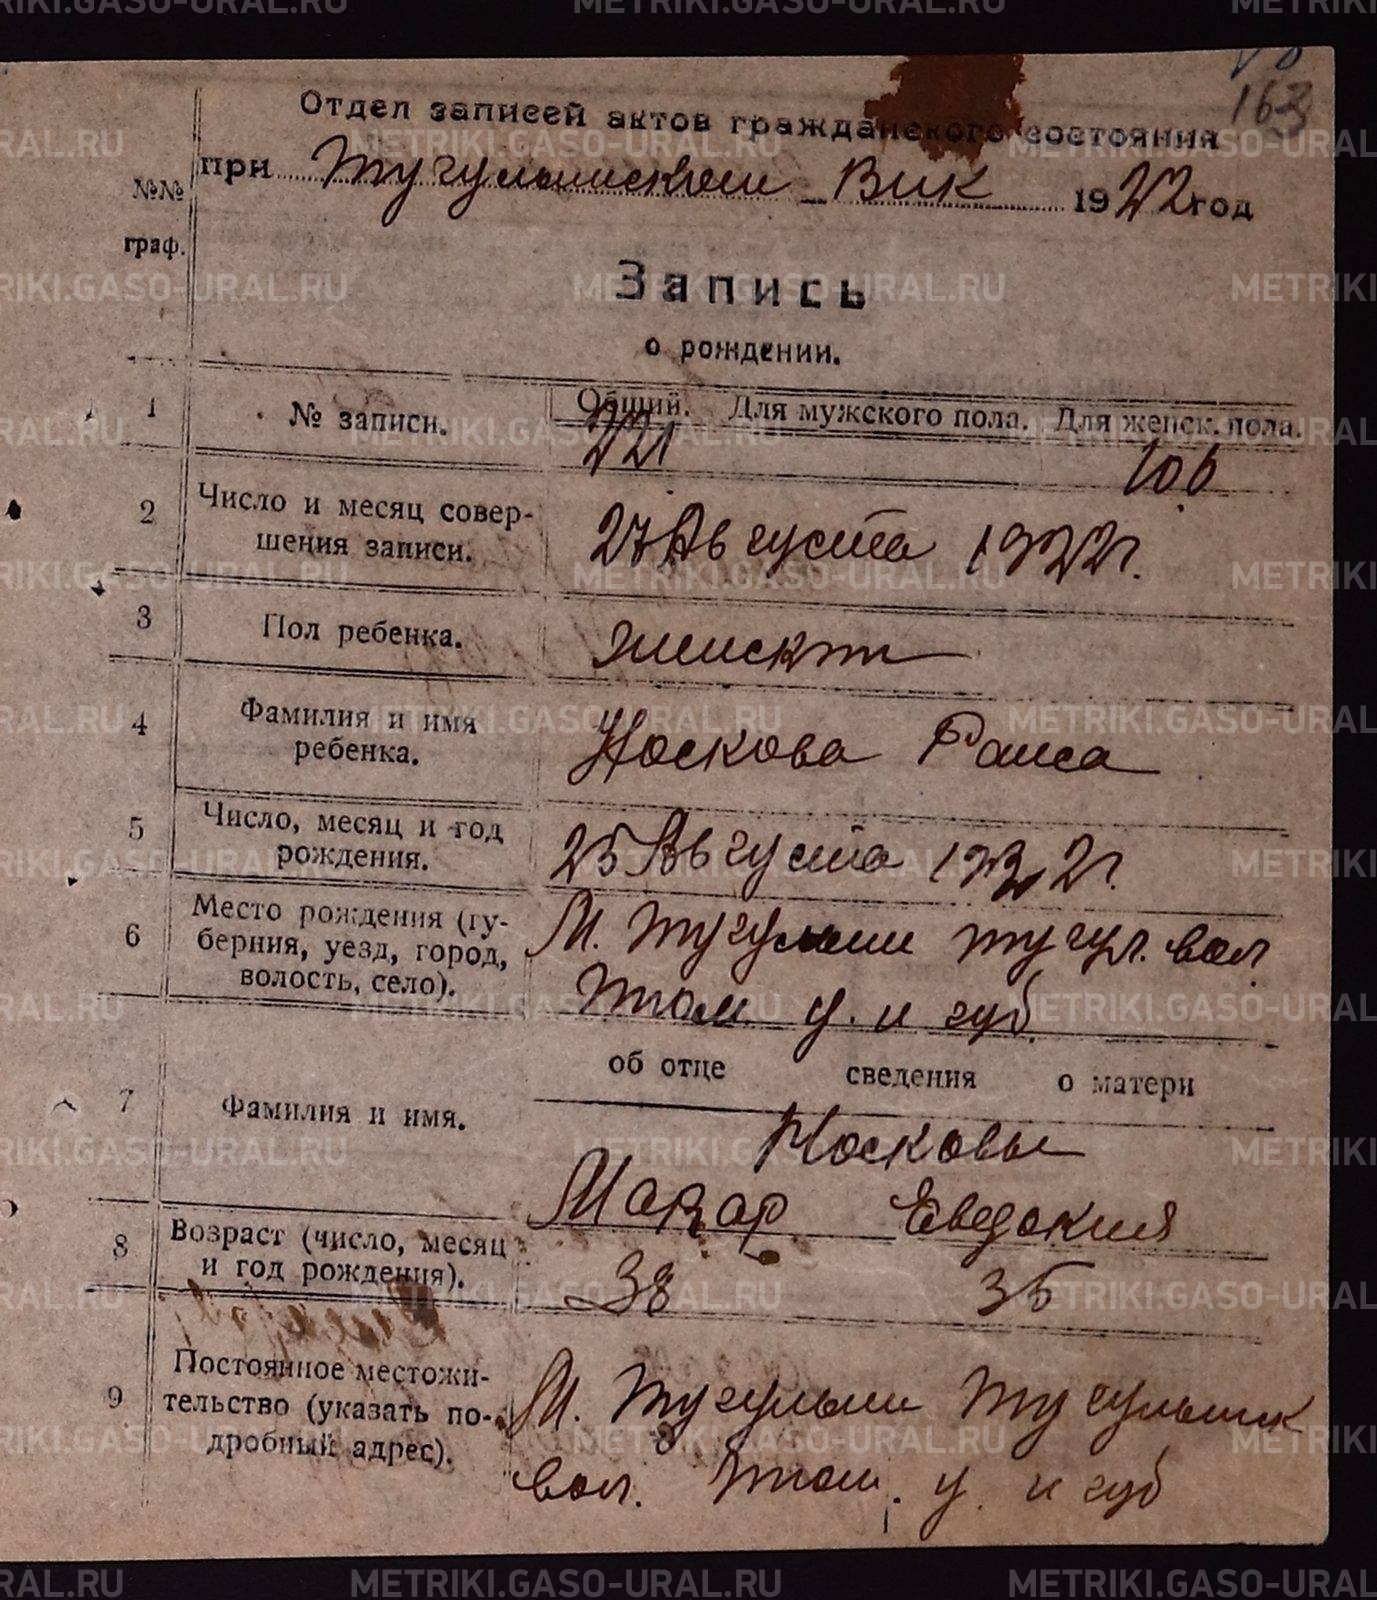 163
Отдел записей актов гражданского состояния
при Тугулымском Вик 1922 год
№№ граф.
Запись
о рождении.
1 № записи. Общий. Для мужского пола. Для женск. пола.
221 106
2 Число и месяц совер-
шения записи. 27 Августа 1922 г.
3 Пол ребенка. женск
4 Фамилия и имя
ребенка. Носкова Раиса
5 Число, месяц и год
рождения. 25 Августа 1922 г.
6 Место рождения (гу-
берния, уезд, город,
волость, село). М. Тугулым тугул. вол
у. и губ.
об отце сведения о матери
7 Фамилия и имя. Носковы
Макар Евдокия
8 Возраст (число, месяц
и год рождения). 38 35
9 Постоянное местожи-
тельство (указать по-
дробный адрес). М. Тугулым Тугулымск
вол. у. и губ
METRIKI.GASO-URAL.RU